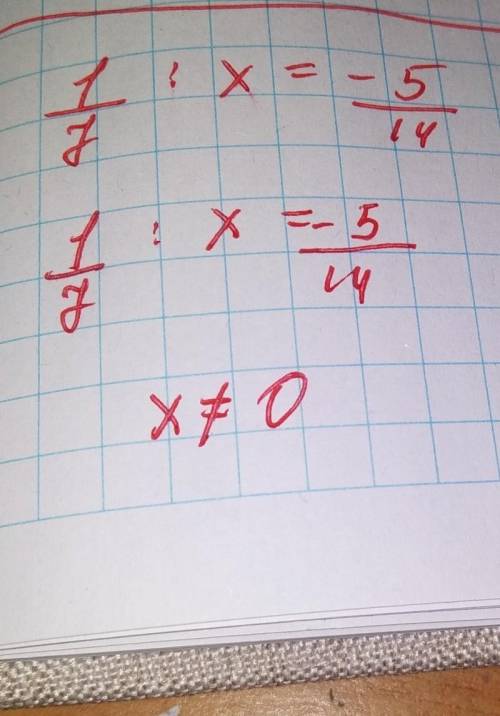 1/7 : x = -5/14
1/7 : x = -5/14
x ≠ 0